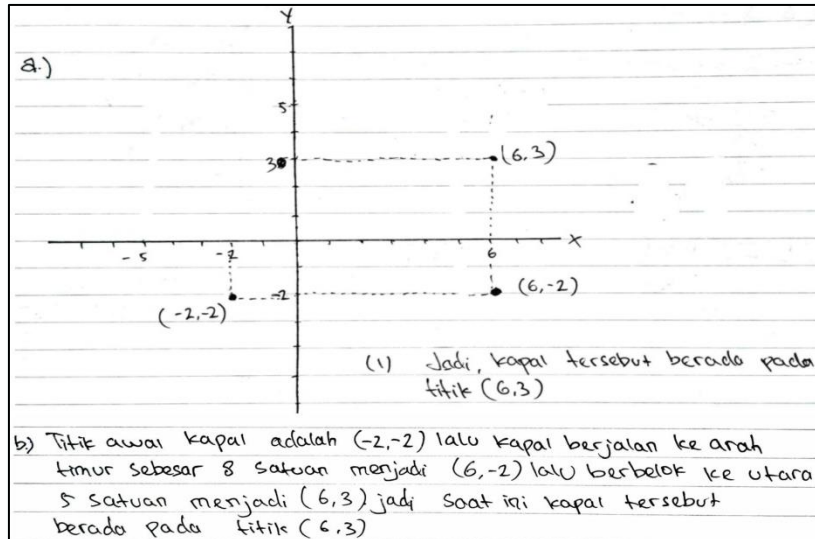 Y
a.)
5
3
(6,3)
-5
-2
6
X
-2
(-2,-2)
(6,-2)
(1) Jadi, kapal tersebut berada pada
titik (6,3)
b.) Titik awal kapal adalah (-2,-2) lalu kapal berjalan ke arah
timur sebesar 8 satuan menjadi (6,-2) lalu berbelok ke utara
5 satuan menjadi (6,3) jadi saat ini kapal tersebut
berada pada titik (6,3)